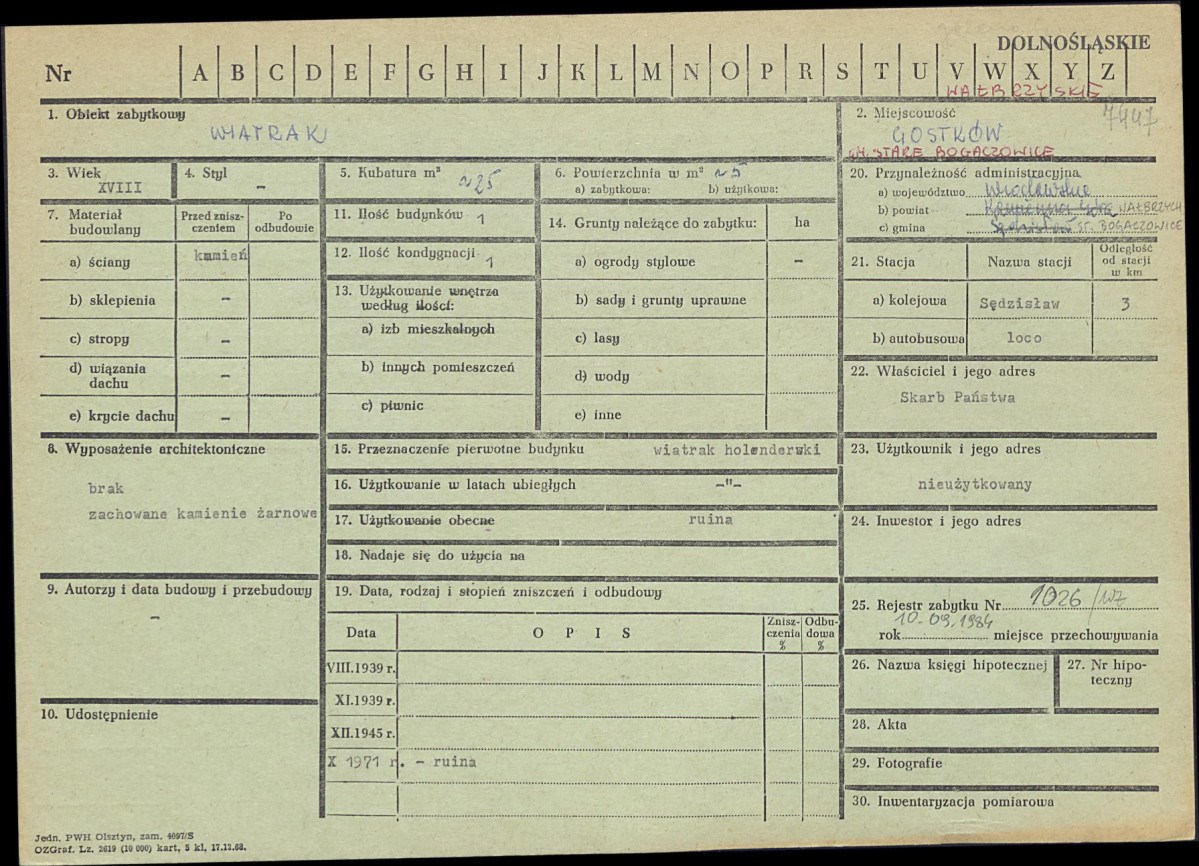 DOLNOŚLĄSKIE
Nr A B C D E F G H I J K L M N O P R S T U V W X Y Z
WAŁBRZYSKIE
7447
1. Obiekt zabytkowy
WIATRAK
2. Miejscowość
GOSTKÓW
GM. STARE BOGACZOWICE
3. Wiek
XVIII
4. Styl
-
5. Kubatura m³
~25
6. Powierzchnia w m² ~5
a) zabytkowa: b) użytkowa:
20. Przynależność administracyjna
a) województwo Wrocławskie
b) powiat Kamienna Góra WAŁBRZYCH
c) gmina ST. BOGACZOWICE
7. Materiał budowlany
Przed znisz-czeniem
Po odbudowie
a) ściany kamień
b) sklepienia -
c) stropy -
d) wiązania dachu -
e) krycie dachu -
11. Ilość budynków 1
12. Ilość kondygnacji 1
13. Użytkowanie wnętrza według ilości:
a) izb mieszkalnych
b) innych pomieszczeń
c) piwnic
14. Grunty należące do zabytku: ha
a) ogrody stylowe -
b) sady i grunty uprawne
c) lasy
d) wody
e) inne
21. Stacja Nazwa stacji Odległość od stacji w km
a) kolejowa Sędzisław 3
b) autobusowa loco
22. Właściciel i jego adres
Skarb Państwa
8. Wyposażenie architektoniczne
brak
zachowane kamienie żarnowe
15. Przeznaczenie pierwotne budynku wiatrak holenderski
16. Użytkowanie w latach ubiegłych -"-
17. Użytkowanie obecne ruina
18. Nadaje się do użycia na
23. Użytkownik i jego adres
nieużytkowany
24. Inwestor i jego adres
9. Autorzy i data budowy i przebudowy
-
19. Data, rodzaj i stopień zniszczeń i odbudowy
Data O P I S Znisz-czenia % Odbu-dowa %
VIII.1939 r.
XI.1939 r.
XII.1945 r.
X 1971 r. - ruina
25. Rejestr zabytku Nr 1026/WZ
10.09.1984
rok miejsce przechowywania
26. Nazwa księgi hipotecznej
27. Nr hipo-teczny
10. Udostępnienie
28. Akta
29. Fotografie
30. Inwentaryzacja pomiarowa
Jedn. PWH Olsztyn, zam. 4097/S
OZGraf. Lz. 2619 (10 000) kart, 5 kl, 17.12.68.